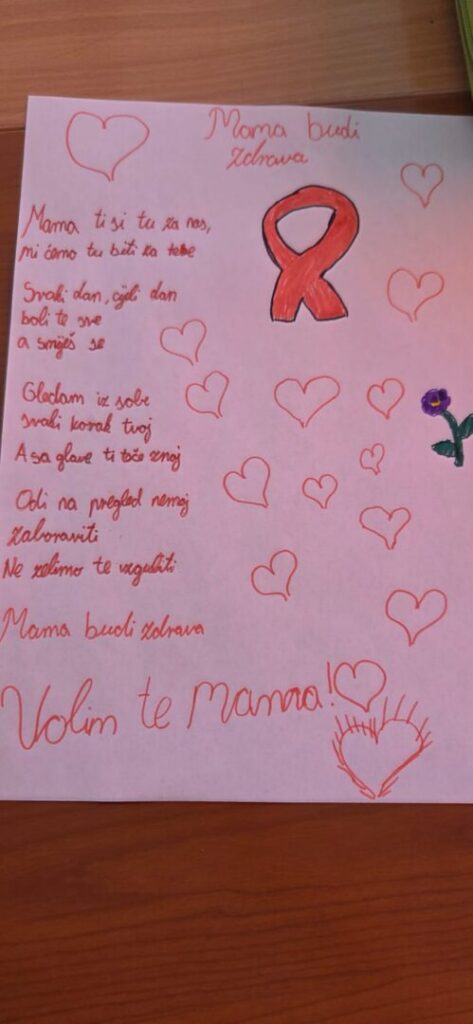 Mama budi
zdrava
Mama ti si tu za nas,
mi ćemo tu biti za tebe
Svaki dan, cijeli dan
boli te sve
a smiješ se
Gledam iz sobe
svaki korak tvoj
A sa glave ti toče znoj
Odi na pregled nemoj
zaboraviti
Ne zelimo te izgubiti
Mama budi zdrava
Volim te Mama!